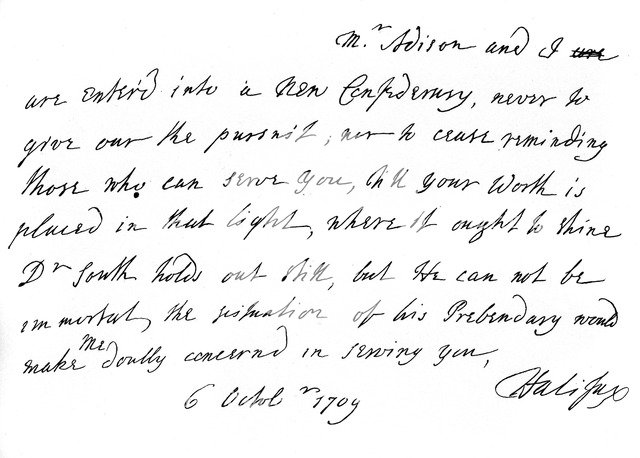 Mr Adison and I are
are enter'd into a New Confederacy, never to
give over the pursuit, nor to cease reminding
those who can serve you, till your Worth is
placed in that light, where it ought to shine
Dr South holds out still, but He can not be
immortal, the situation of his Prebendary would
make Me doubly concernd in serving you,
Halifax
6 Octobr 1709